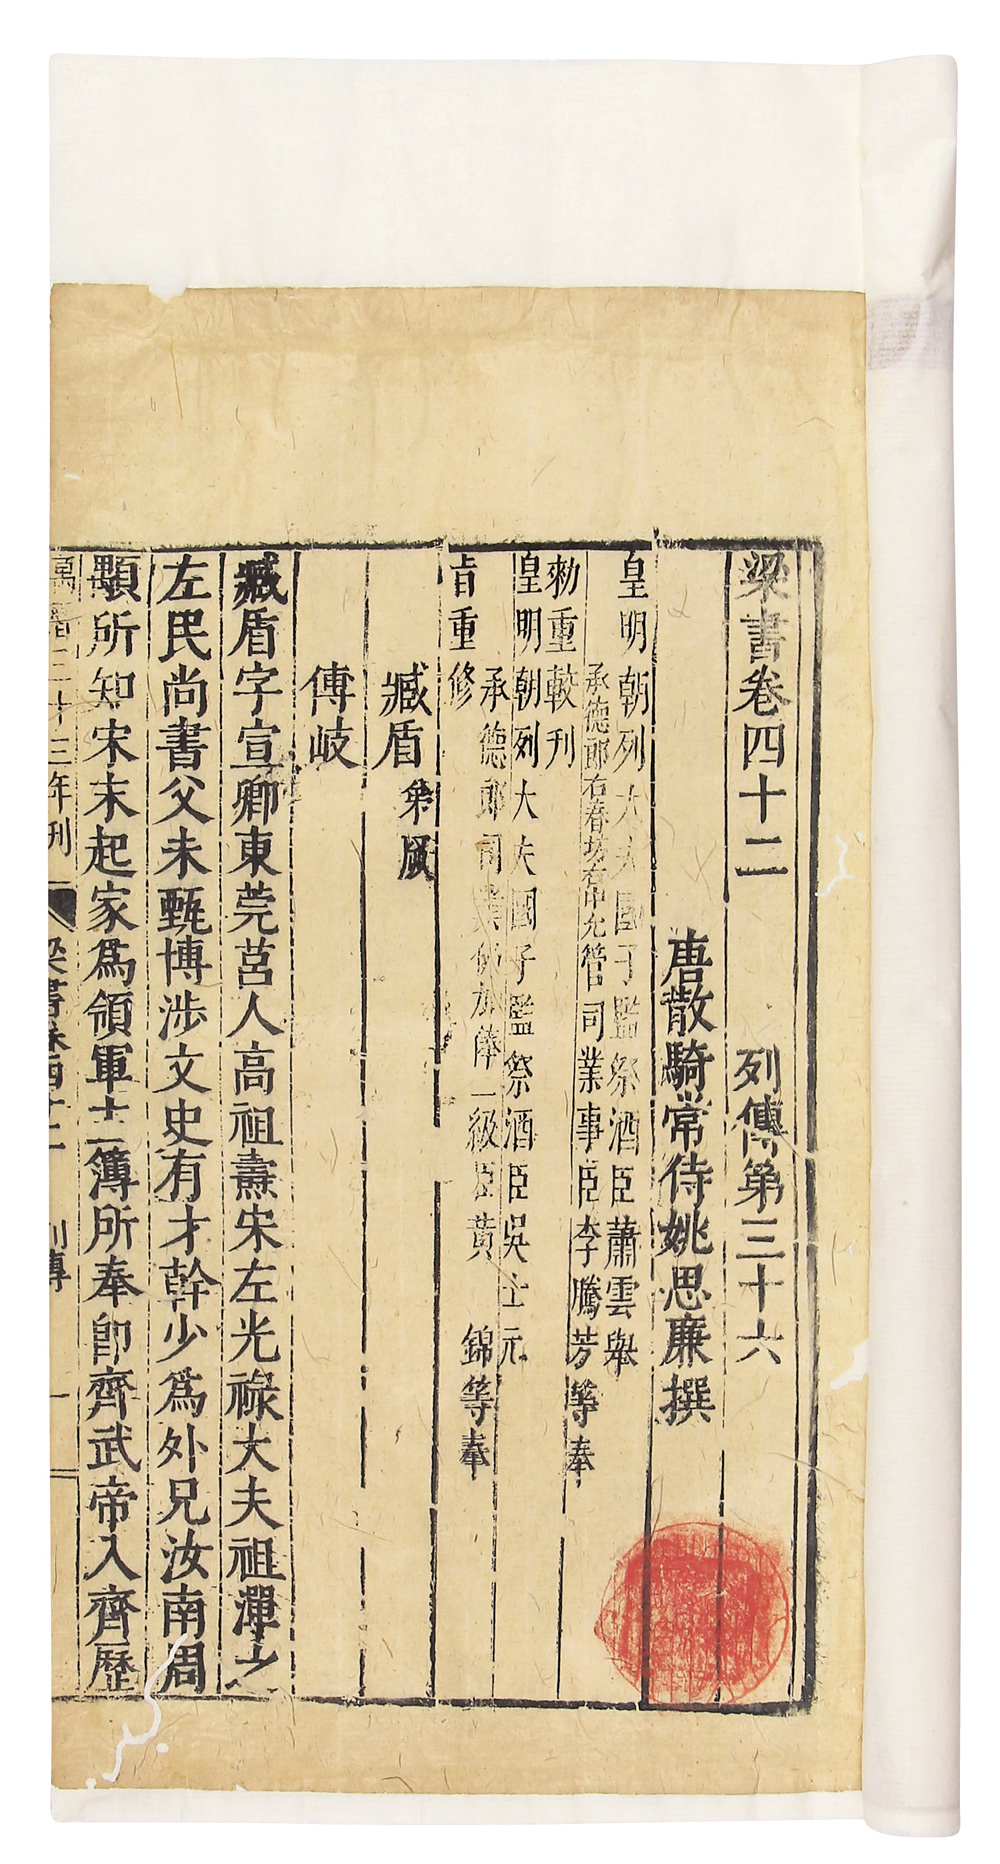 梁書卷四十二 列傳第三十六
唐散騎常侍姚思廉撰
皇明朝列大夫國子監祭酒臣蕭雲舉
承德郎右春坊右中允管司業事臣李騰芳等奉
勑重較刊
皇明朝列大夫國子監祭酒臣吳士元
承德郎司業仍加俸一級臣黃錦等奉
旨重修
臧盾 弟厥
傅岐
臧盾字宣卿東莞莒人高祖燾宋左光祿大夫祖潭之
左民尚書父未甄博涉文史有才幹少為外兄汝南周
顒所知宋末起家為領軍主簿所奉即齊武帝入齊歷
萬曆三十三年刊 梁書卷四十二 列傳 一